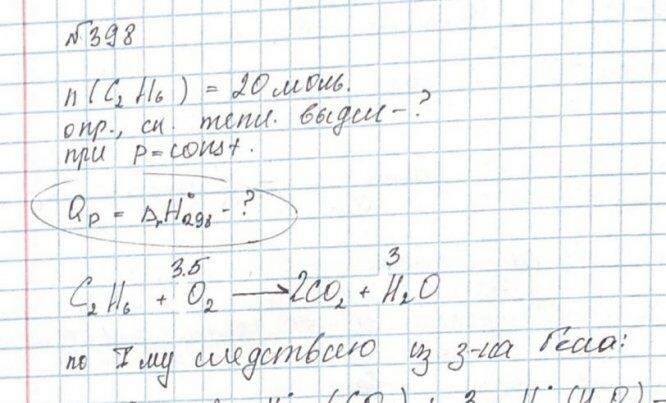 №398
n(C₂H₆) = 20 моль.
опр., ск. тепл. выдел - ?
при p = const.
Qp = ΔrH°298 - ?
C₂H₆ + 3.5 O₂ → 2CO₂ + 3 H₂O
по I му следствию из з-на Гесса: